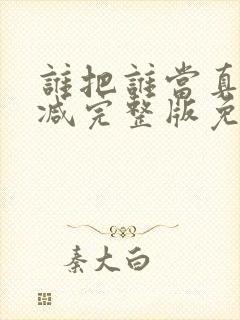 誰把誰當真
减完整版免
秦大白